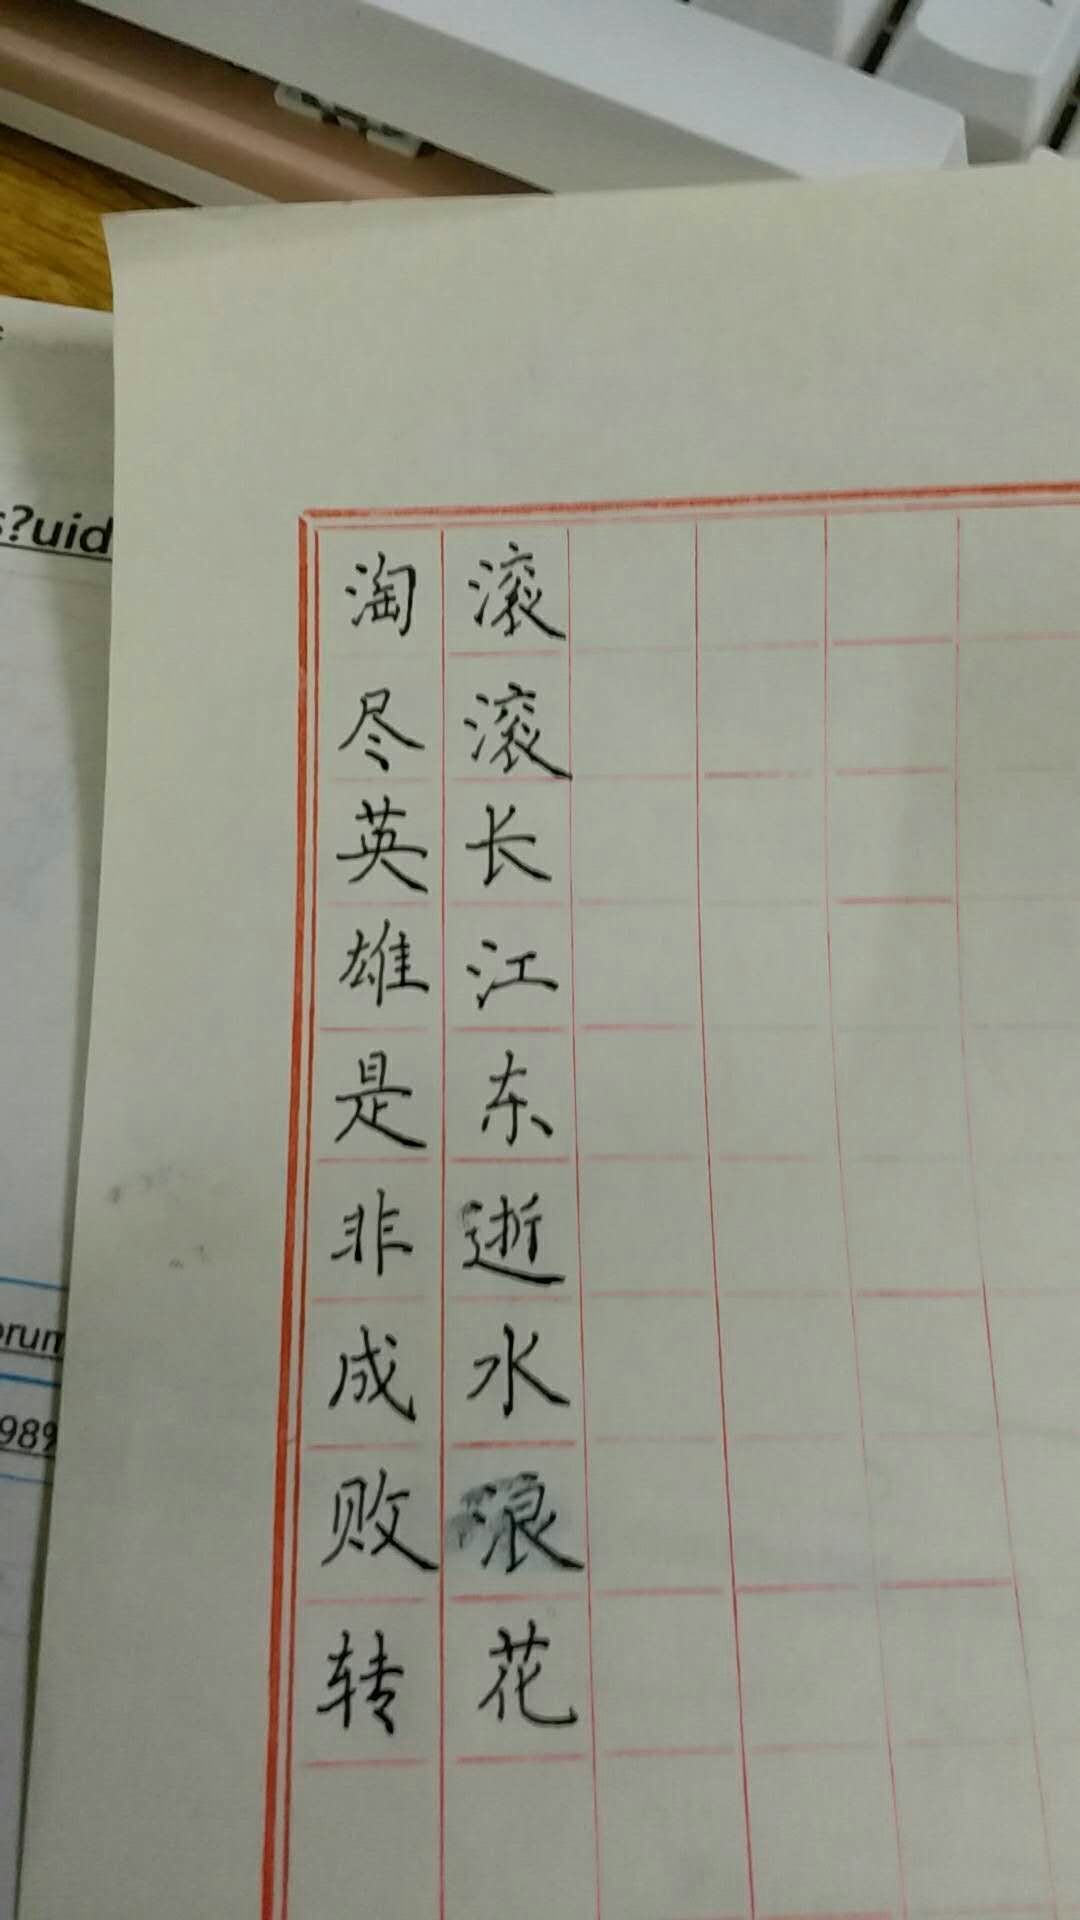 滚滚长江东逝水浪花
淘尽英雄是非成败转
s?uid
orum
989